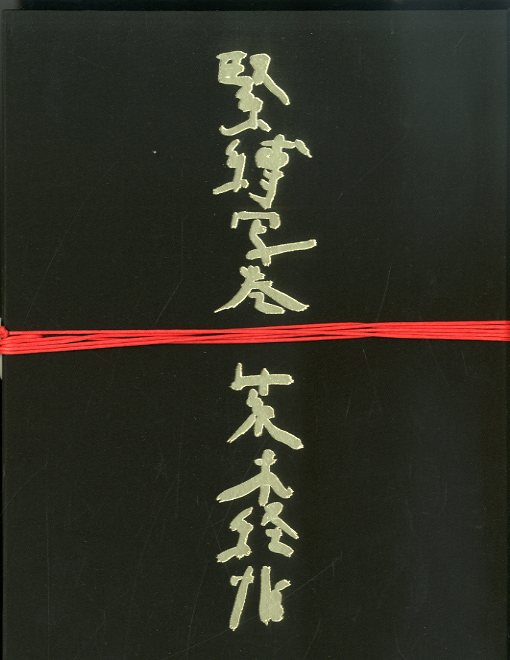 緊縛写巻
荒木経惟